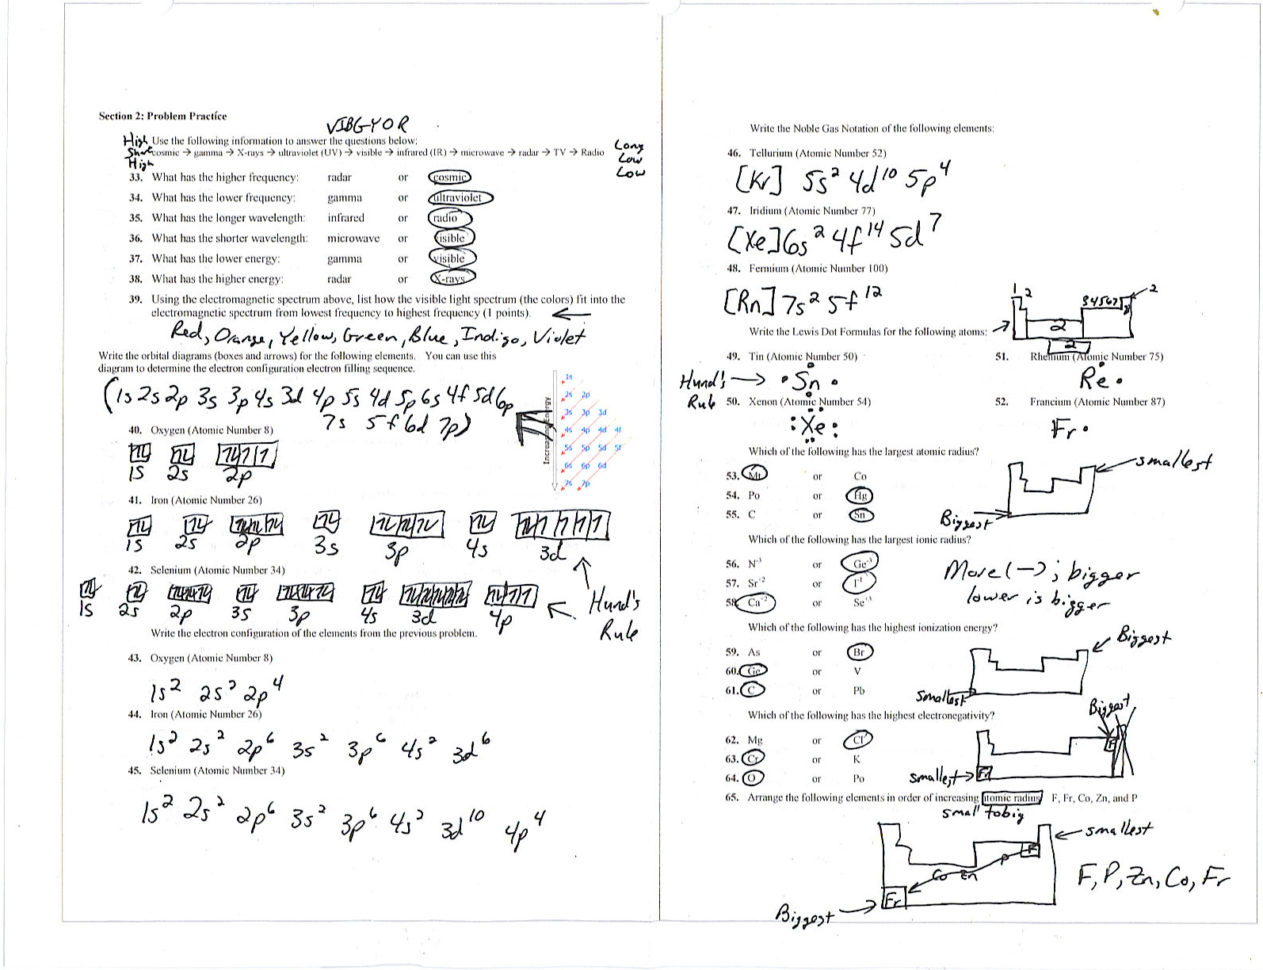 Section 2: Problem Practice
VIBGYOR
High Use the following information to answer the questions below: Long
Short cosmic → gamma → X-rays → ultraviolet (UV) → visible → infrared (IR) → microwave → radar → TV → Radio Low
High Low
33. What has the higher frequency: radar or cosmic
34. What has the lower frequency: gamma or ultraviolet
35. What has the longer wavelength: infrared or radio
36. What has the shorter wavelength: microwave or visible
37. What has the lower energy: gamma or visible
38. What has the higher energy: radar or X-rays
39. Using the electromagnetic spectrum above, list how the visible light spectrum (the colors) fit into the
electromagnetic spectrum from lowest frequency to highest frequency (1 points).
Red, Orange, Yellow, Green, Blue, Indigo, Violet
Write the orbital diagrams (boxes and arrows) for the following elements. You can use this
diagram to determine the electron configuration electron filling sequence.
(1s 2s 2p 3s 3p 4s 3d 4p 5s 4d 5p 6s 4f 5d 6p
7s 5f 6d 7p)
1s
2s 2p
3s 3p 3d
4s 4p 4d 4f
5s 5p 5d 5f
6s 6p 6d
7s 7p
40. Oxygen (Atomic Number 8)
1s 2s 2p
41. Iron (Atomic Number 26)
1s 2s 2p 3s 3p 4s 3d
42. Selenium (Atomic Number 34)
1s 2s 2p 3s 3p 4s 3d 4p
Hund's
Rule
Write the electron configuration of the elements from the previous problem.
43. Oxygen (Atomic Number 8)
1s² 2s² 2p⁴
44. Iron (Atomic Number 26)
1s² 2s² 2p⁶ 3s² 3p⁶ 4s² 3d⁶
45. Selenium (Atomic Number 34)
1s² 2s² 2p⁶ 3s² 3p⁶ 4s² 3d¹⁰ 4p⁴
Write the Noble Gas Notation of the following elements:
46. Tellurium (Atomic Number 52)
[Kr] 5s² 4d¹⁰ 5p⁴
47. Iridium (Atomic Number 77)
[Xe] 6s² 4f¹⁴ 5d⁷
48. Fermium (Atomic Number 100)
[Rn] 7s² 5f¹²
1 2 3 4 5 6 7 8 2
2
2
Write the Lewis Dot Formulas for the following atoms:
49. Tin (Atomic Number 50) 51. Rhenium (Atomic Number 75)
Hund's Sn Re
Rule 50. Xenon (Atomic Number 54) 52. Francium (Atomic Number 87)
Xe Fr
Which of the following has the largest atomic radius?
smallest
53. Mt or Co
54. Po or Hg
55. C or Sn
Biggest
Which of the following has the largest ionic radius?
56. N⁻³ or Ge⁻³
57. Sr⁺² or I⁻¹
58. Ca⁻² or Se⁺³
More (-); bigger
lower is bigger
Which of the following has the highest ionization energy?
Biggest
59. As or Br
60. Ge or V
61. C or Pb
Smallest
Which of the following has the highest electronegativity?
Biggest
62. Mg or Cl
F
63. Cr or K
64. O or Po
smallest Fr
65. Arrange the following elements in order of increasing atomic radius F, Fr, Co, Zn, and P
small to big
smallest
F
P
Co Zn
Fr
Biggest
F, P, Zn, Co, Fr